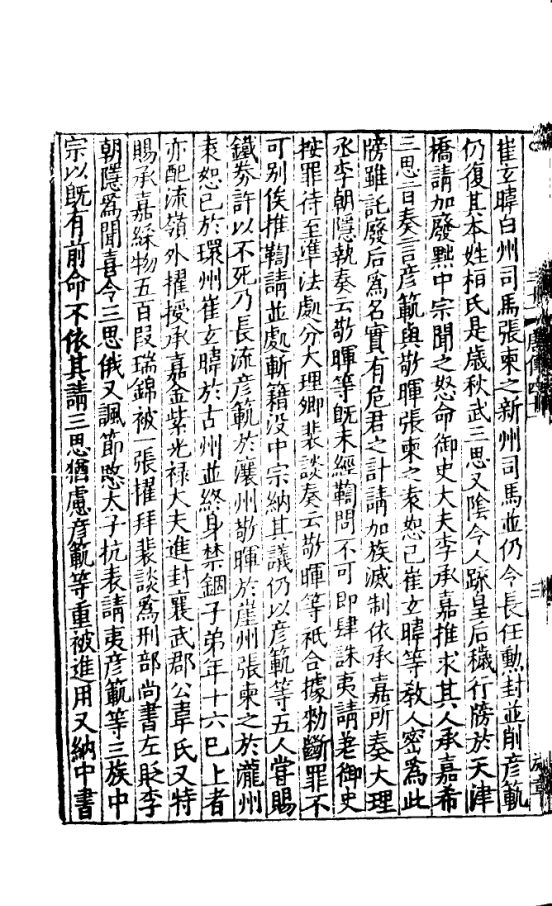 崔玄暐白州司馬張柬之新州司馬並仍令長任勳封並削彦範
仍復其本姓桓氏是歲秋武三思又陰令人疏皇后穢行牓於天津
橋請加廢黜中宗聞之怒命御史大夫李承嘉推求其人承嘉希
三思旨奏言彦範與敬暉張柬之袁恕己崔玄暐等教人密爲此
牓雖託廢后爲名實有危君之計請加族滅制依承嘉所奏大理
丞李朝隱執奏云敬暉等既未經鞫問不可即肆誅夷請差御史
按罪待至準法處分大理卿裴談奏云敬暉等祇合據勑斷罪不
可別俟推鞫請並處斬籍没中宗納其議仍以彦範等五人嘗賜
鐵券許以不死乃長流彦範於瀼州敬暉於崖州張柬之於瀧州
袁恕己於環州崔玄暐於古州並終身禁錮子弟年十六已上者
亦配流嶺外擢授承嘉金紫光禄大夫進封襄武郡公韋氏又特
賜承嘉綵物五百段瑞錦被一張擢拜裴談爲刑部尚書左貶李
朝隱爲聞喜令三思俄又諷節愍太子抗表請夷彦範等三族中
宗以既有前命不依其請三思猶慮彦範等重被進用又納中書